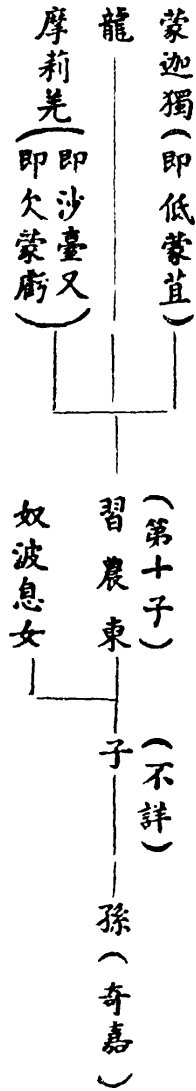 蒙迦獨(即低蒙苴)
龍
摩莉羌(即沙臺又
即欠蒙虧)
(第十子)
習農東
奴波息女
(不詳)
子
孫(奇嘉)